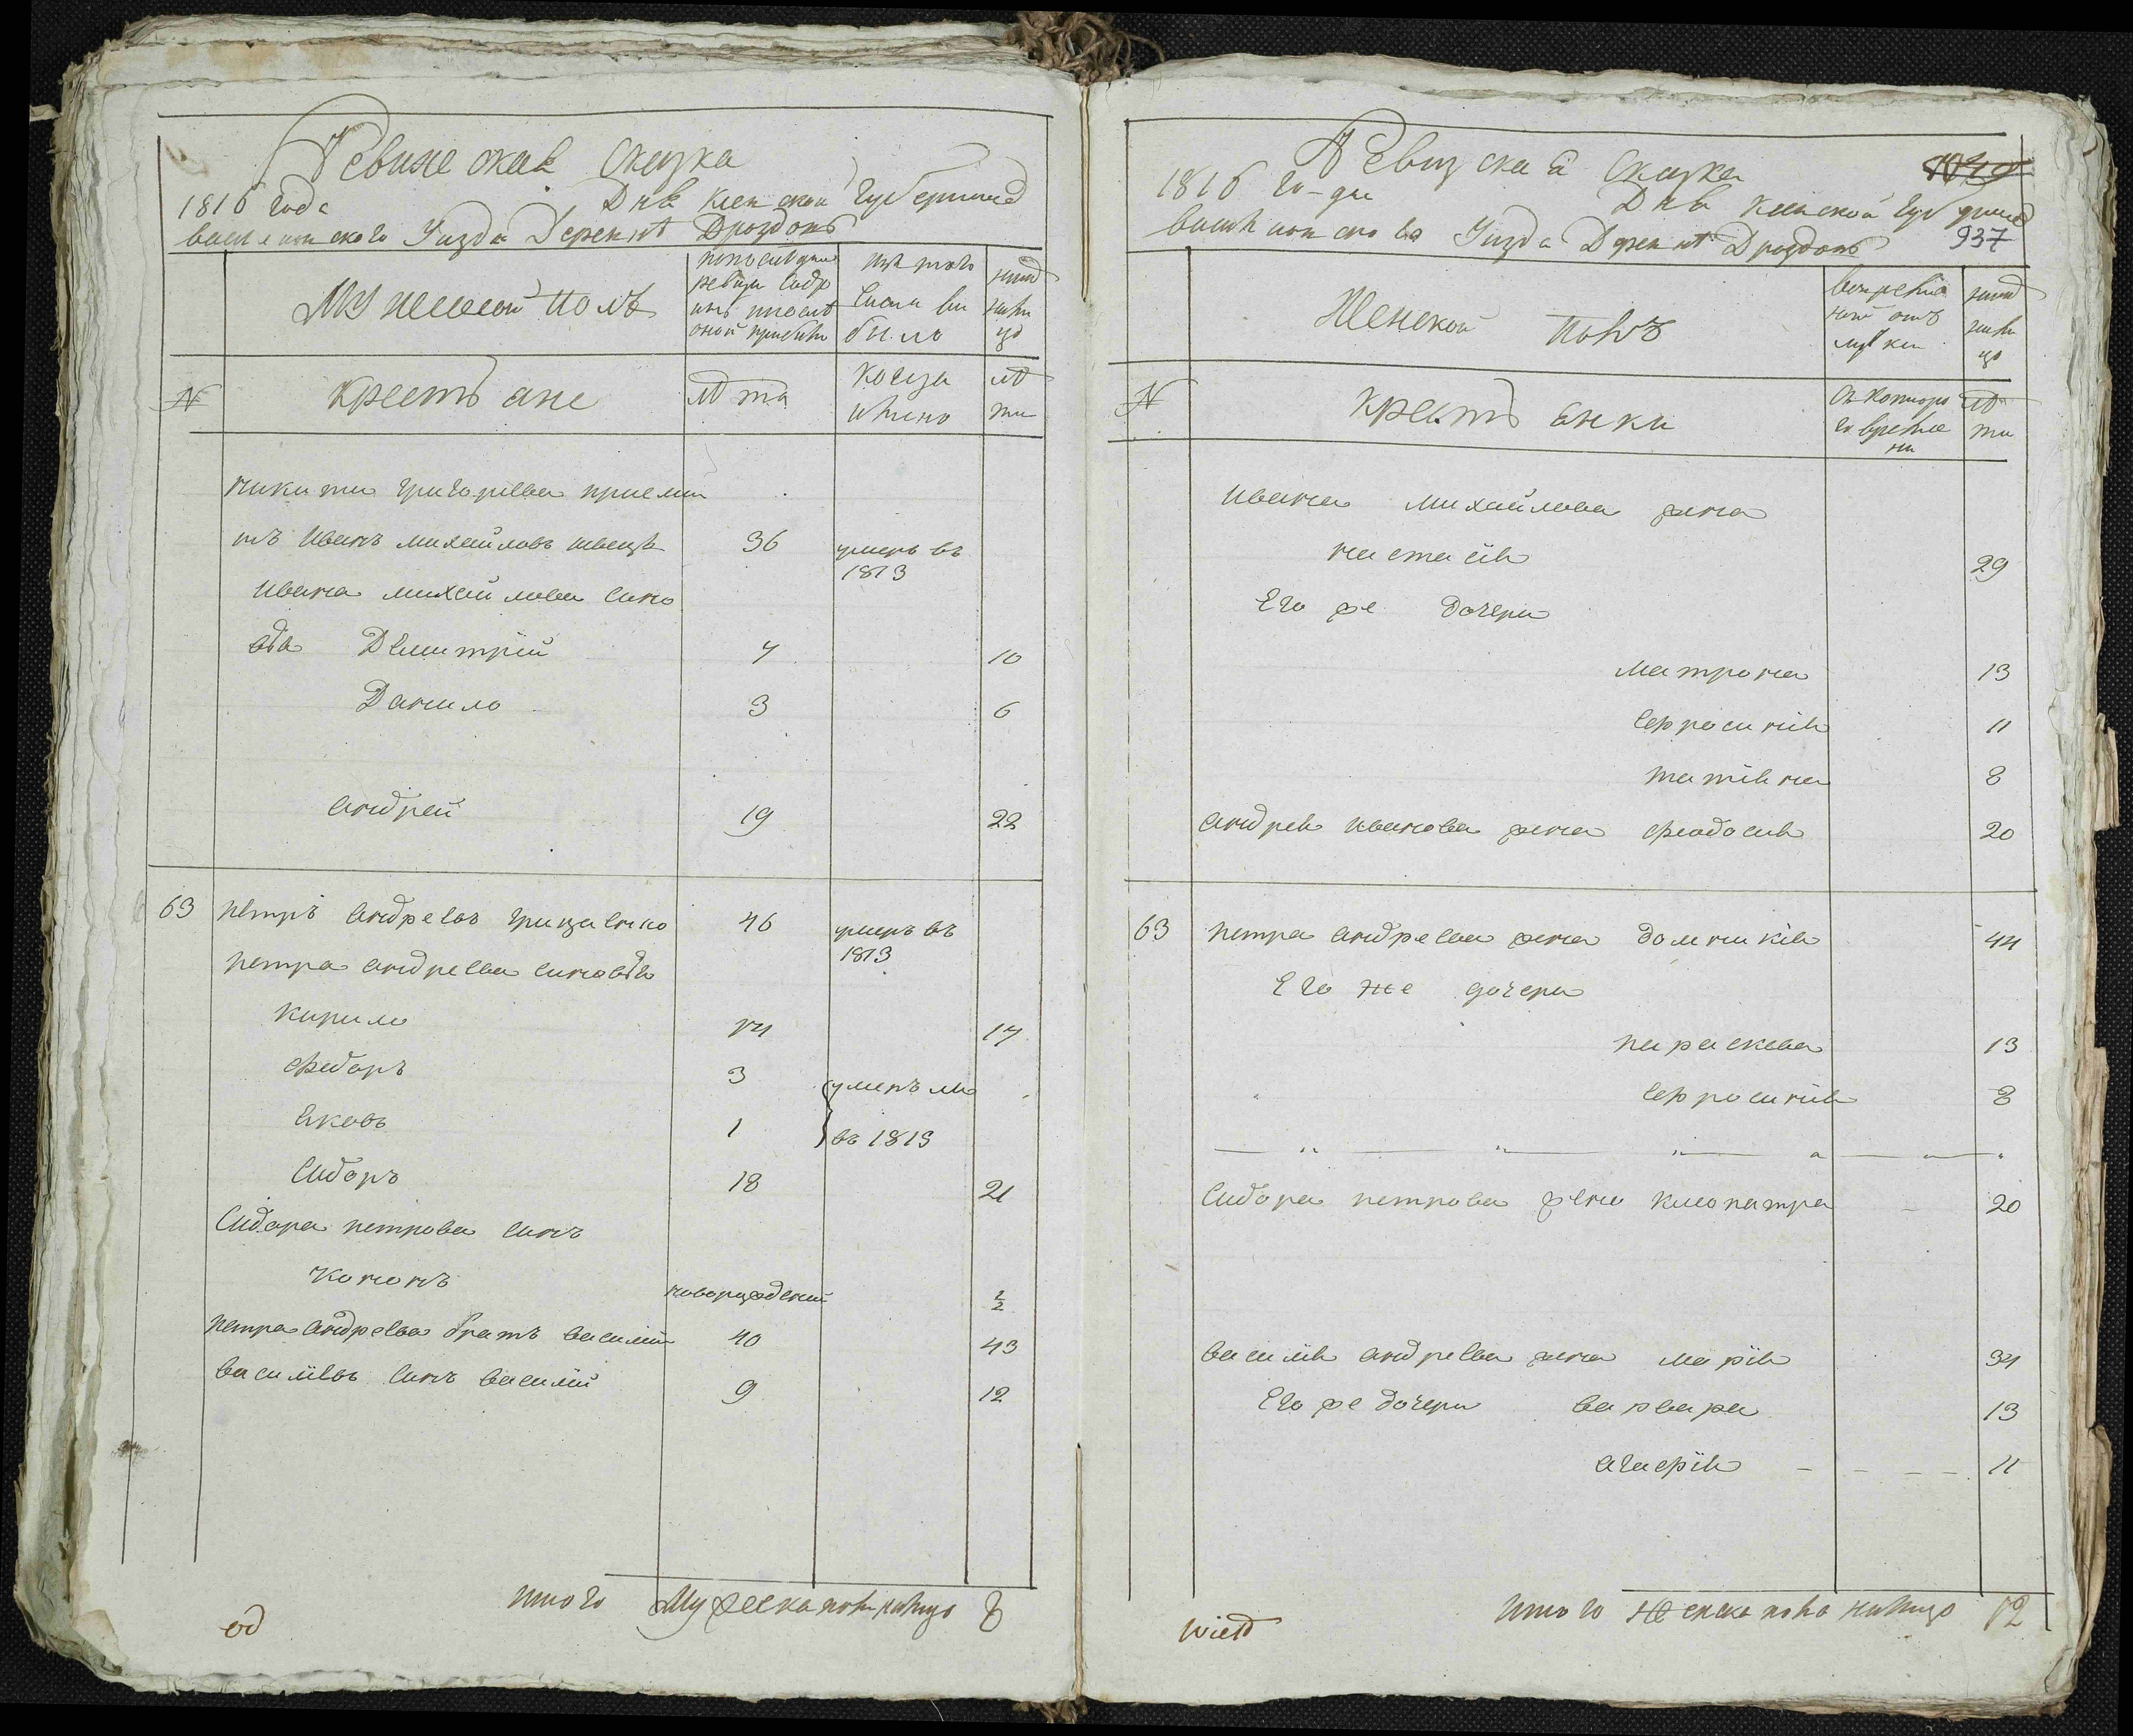 Ревижская сказка
1816 года Дня Киевской губернии
василковского уизда деревни Дроздовъ
Мужеской полъ
по последней ревизи
изъ того числа выбыло
ныне налицо
№
крестьяне
лѣта
когда имено
лѣта
никити григорева приемы
шъ иванъ михайловъ швецъ 36 умеръ въ 1813
ивана михайлова сино
вья Дмитрій 7 10
Данило 3 6
андрей 19 22
63 петръ андреевъ грицаенко 46 умеръ въ 1813
петра андреева синовья
кирило 14 17
федоръ 3 умерли
яковъ 1 въ 1813
сидоръ 18 21
сидора петрова синъ
кононъ новорождений ½
петра андреева братъ василій 40 43
василіевъ синъ василій 9 12
итого Мужеска пола налицо 8
od
Ревизская сказка
1040
1816 года Дня Киевской губернии
василковского уизда Деревни Дроздовъ
937
Женской полъ
№
крестьянки
съ которого времени
лѣта
ивана михайлова жена
настасія 29
Его же дочери
матрона 13
ефросинія 11
татіяна 8
андрея иванова жена феодосія 20
63 петра андреева жена домникія 44
Его же дочери
параскева 13
ефросинія 8
сидора петрова жена клеопатра 20
василія андреева жена марія 34
Его же дочери варвара 13
агафія 11
итого женска пола налицо 12
wieś